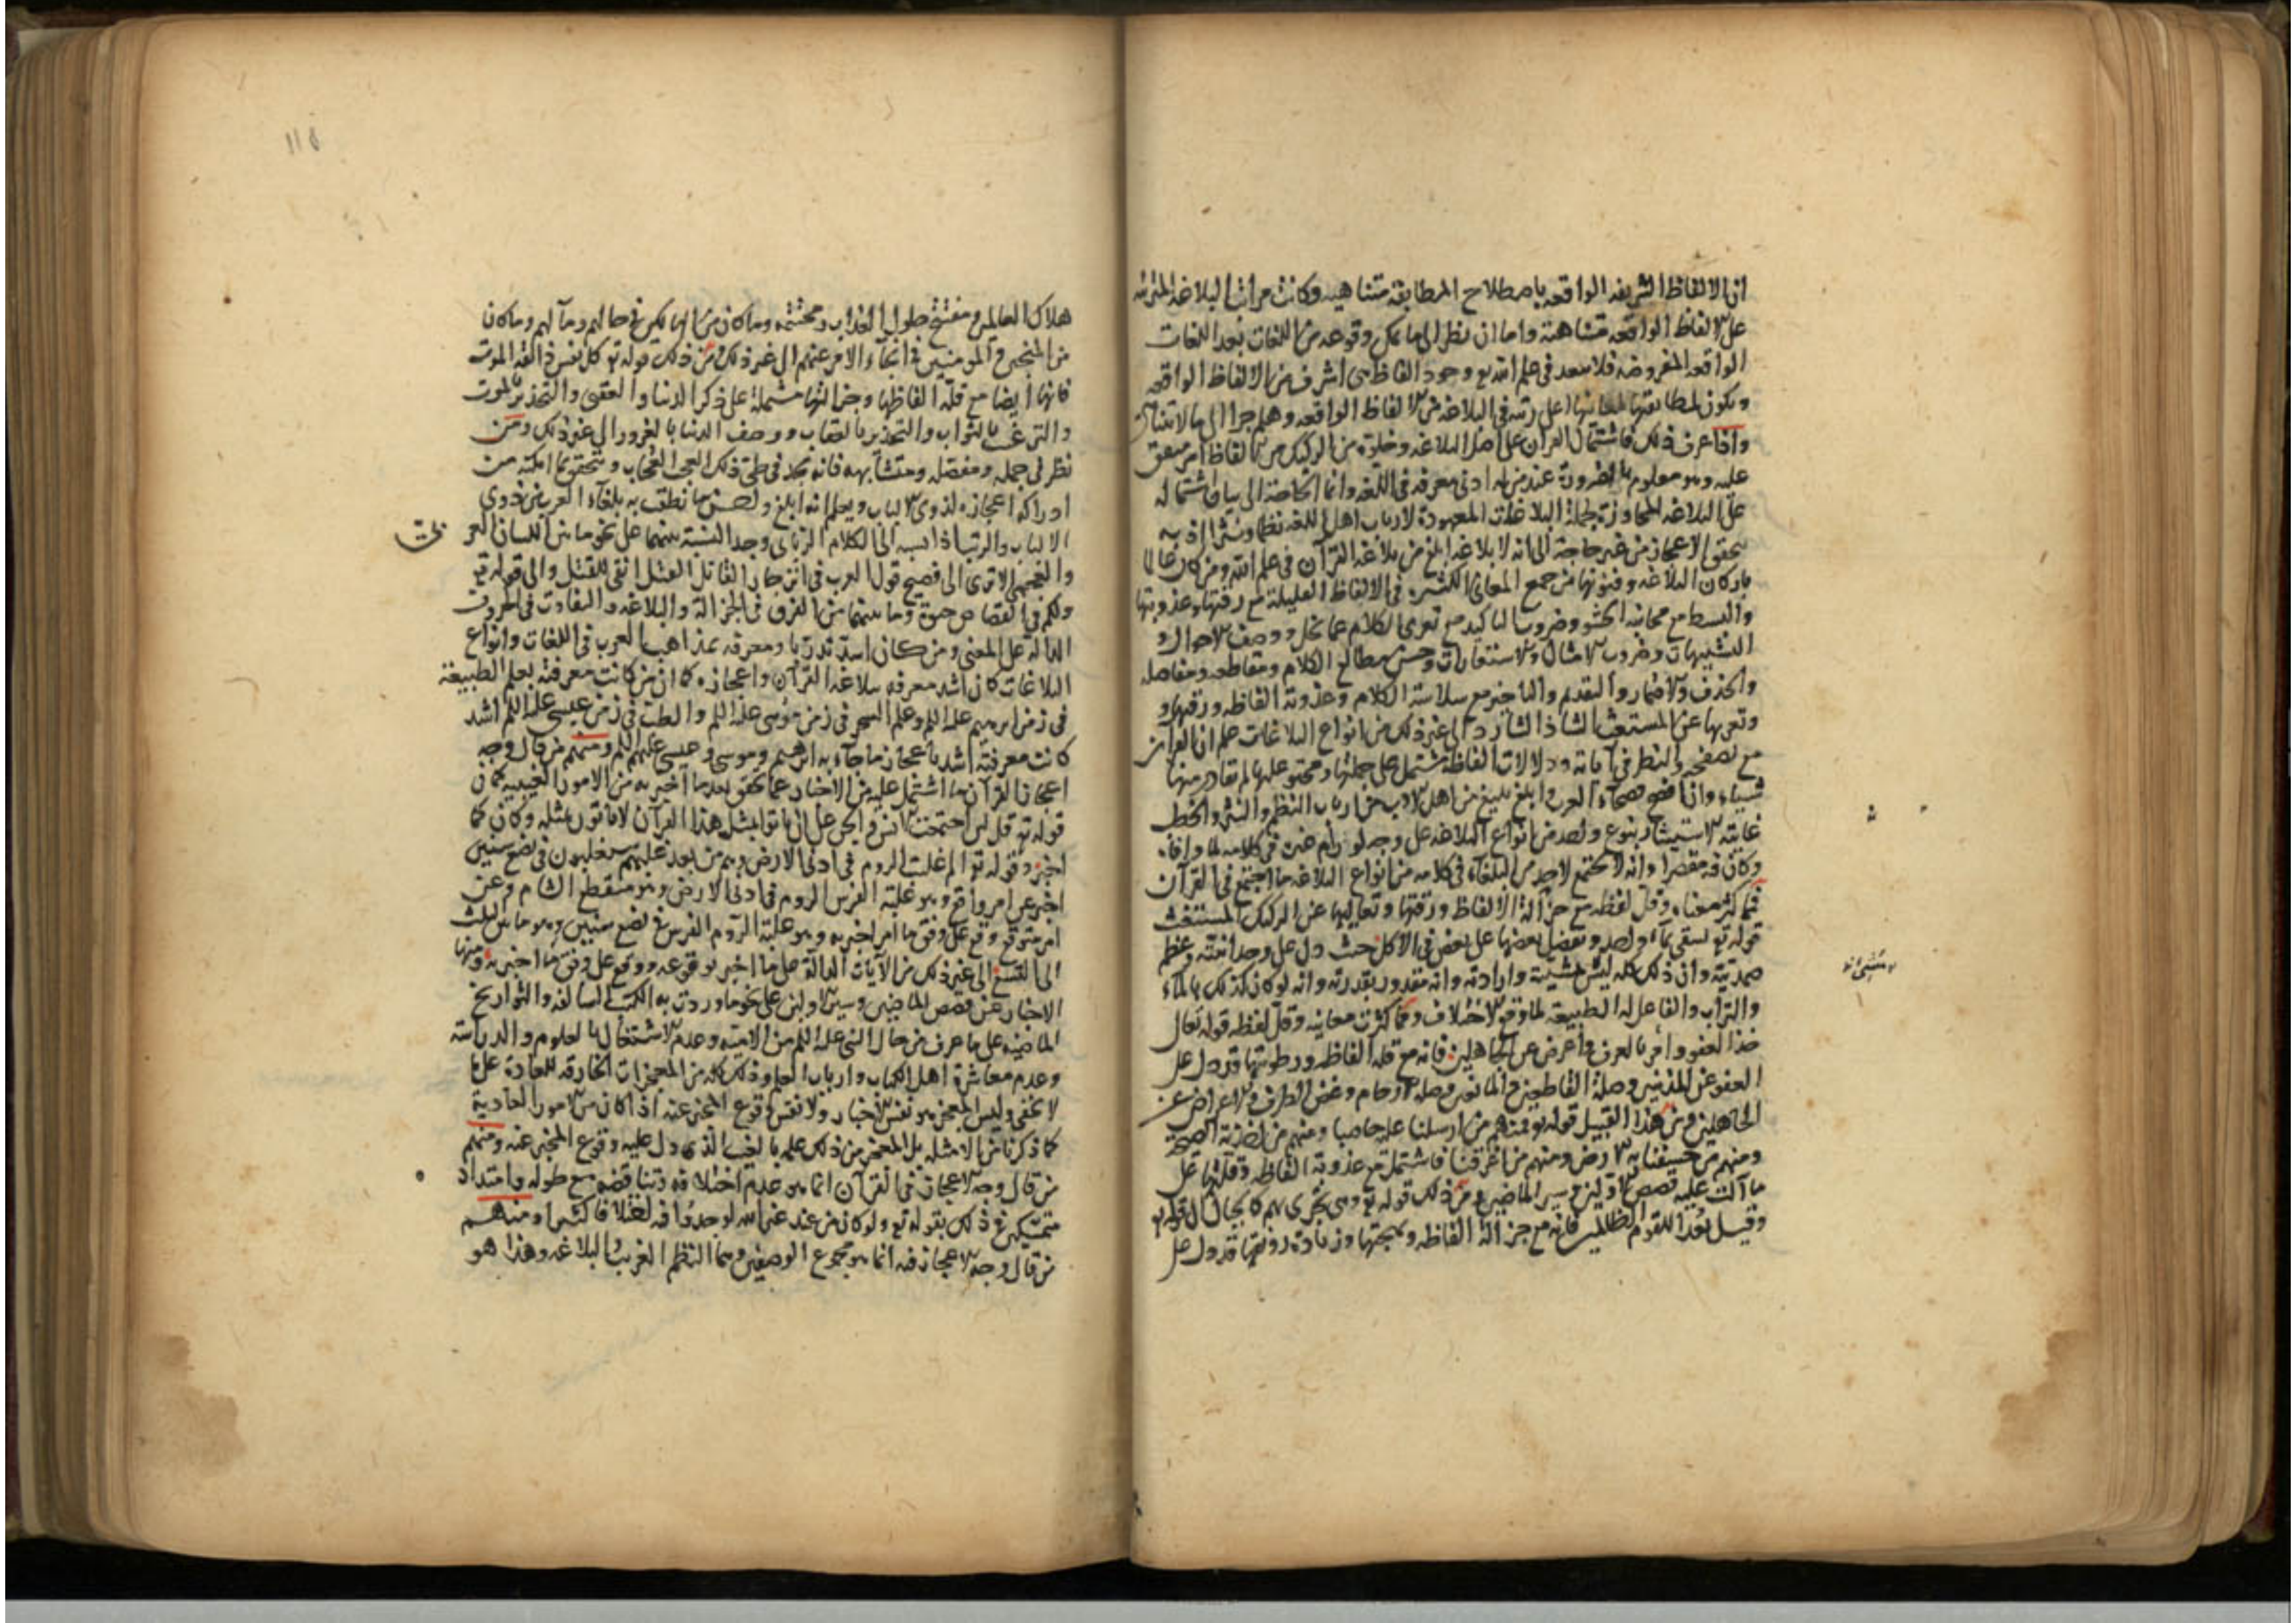 ان الالفاظ الشريفه الواقعه باصطلاح المطابقه متناهيه وكانت مراتب البلاغه المترتبه
على الالفاظ الواقعه متناهية واما ان نظر الى ما يمكن وقوعه من اللغات بعد اللغات
الواقعه المفروضه فلا يبعد في علم الله تع وجود الفاظ هى اشرف من الالفاظ الواقعه
ويكون لمطابقتها لمعانيها اعلى رتبه في البلاغه من الالفاظ الواقعه وهلم جرا الى ما لا يتناهى
واذا عرف ذلك فاشتمال القران على اصل البلاغه وخلوه من الركيك من الالفاظ امر متفق
عليه وهو معلوم بالضرورة عند من له ادنى معرفه في اللغه وانما الحاجة الى بيان اشتماله
على البلاغه المجاوزة لجملة البلاغات المعهودة لارباب اهل اللغه نظما ونثرا اذ به
يتحقق الاعجاز من غير حاجة الى انه لا بلاغه ابلغ من بلاغه القرآن في علم الله ومن كان عالما
باركان البلاغه وفنونها من جمع المعانى الكثيره في الالفاظ القليلة مع رقتها وعذوبتها
والبسط مع مجانبه الحشو وضروب التاكيد مع تعرى الكلام عما يخل ووصف الاحوال و
التشبيهات وضروب الامثال والاستعارات وحسن مطالع الكلام ومقاطعه ومفاصله
والحذف والاضمار والتقديم والتاخير مع سلاسة الكلام وعذوبة الفاظه ورقتها و
وتعريها عن المستغث الشاذ الشارد الى غير ذلك من انواع البلاغات علم ان القرآن
مع تصفحه والنظر في آياته ودلالات الفاظه مشتمل على جملتها ومحتو عليها لم تغادر منها
شيئا وان افصح فصحآء العرب وابلغ بليغ من اهل الادب من ارباب النظم والنثر والخطب
غايته الاستيثار بنوع واحد من انواع البلاغه على وجه لو رام غيره في كلامه لما وافاه
وكان فيه مقصرا وانه لا يجتمع لاحد من البلغآء في كلامه من انواع البلاغه ما اجتمع في القرآن
فمما كثر معناه وقل لفظه مع جزالة الالفاظ ورقتها وتعاليها عن الركيك المستغث
قوله تع يسقى بمآء واحد ونفضل بعضها على بعض في الاكل حيث دل على وحدانيته وعظم
صمديته وان ذلك كله ليس الا بمشيته وارادته وانه مقدور بقدرته وانه لو كان ذلك بالمآء
والتراب والفاعل له الطبيعة لما وقع الاختلاف ومما كثرت معانيه وقل لفظه قوله تعال
خذ العفو وامر بالعرف واعرض عن الجاهلين فانه مع قله الفاظه ورطوبتها قد دل على
العفو عن المذنبين وصلة القاطعين والمانعين وصله الارحام وغض الطرف والاعراض عن
الجاهلين ومن هذا القبيل قوله تع فمنهم من ارسلنا عليه حاصبا ومنهم من اخذته الصيحة
ومنهم من خسفنا به الارض ومنهم من اغرقنا فاشتمل مع عذوبة الفاظه وقلتها على
ما آلت عليه قصص الاولين وسير الماضين ومن ذلك قوله تع وهى تجرى بهم كالجبال الى قوله تع
وقيل بعدا للقوم الظالمين فانه مع جزالة الفاظه وبهجتها وزيادة رونقها قد دل على
هلاك العالمين ومفتتح حلول العذاب ومختتمه وما كان من الهالكين في حالهم ومآلهم وما كان
من المنجين والمومنين في انجآء الامر عنهم الى غير ذلك ومن ذلك قوله تع كل نفس ذائقه الموت
فانها ايضا مع قلة الفاظها وجزالتها مشتملة على ذكر الدنيا والعقبى والتحذير بالموت
والترغيب بالثواب والتحذير بالعقاب ووصف الدنيا بالغرور الى غير ذلك ومن
نظر في جمله ومفصله ومتشابهه فانه يجد في طى ذلك العجب العجاب ويتحقق بما امكنه من
ادراكه اعجازه لذوى الالباب ويعلم انه ابلغ واحسن ما نطقت به بلغآء العرب من ذوى
الالباب والرتب اذا نسبه الى الكلام الربانى وجد النسبة بينهما على نحو ما بين اللسان العر
والعجمى الا ترى الى فصيح قول العرب في انزجار القاتل القتل انفى للقتل والى قوله تع
ولكم في القصاص حيوة وما بينهما من الفرق في الجزالة والبلاغه والتفاوت في الحروف
الدالة على المعنى ومن كان اشد تدربا ومعرفه بمذاهب العرب في اللغات وانواع
البلاغات كان اشد معرفه ببلاغه القرآن واعجازه كما ان من كانت معرفته بعلم الطبيعة
في زمن ابرهيم عليه السلم وعلم السحر في زمن موسى عليه السلم والطب في زمن عيسى عليه السلم اشد
كانت معرفته اشد باعجاز ما جآء به ابرهيم وموسى وعيسى عليهم السلم ومنهم من قال وجه
اعجاز القرآن ما اشتمل عليه من الاخبار عما تحقق بعد ما اخبر به من الامور الغيبية كما في
قوله تع قل لئن اجتمعت الانس والجن على ان ياتوا بمثل هذا القرآن لا ياتون بمثله وكان كما
اخبر وقوله تع الم غلبت الروم في ادنى الارض وهم من بعد غلبهم سيغلبون في بضع سنين
اخبر عن امر واقع وهو غلبة الفرس الروم في ادنى الارض وهو مسقط الشام وعن
امر متوقع وقع على وفق ما امر اخبر به وهو غلبة الروم الفرس في بضع سنين وهو ما بين الثلث
الى التسع الى غير ذلك من الآيات الدالة على ما اخبر بوقوعه ووقع على وفق ما اخبر به ومنها
الاخبار عن قصص الماضين وسير الاولين على نحو ما وردت به الكتب السالفه والتواريخ
الماضيه على ما عرف من حال النبى عليه السلم من الامية وعدم الاشتغال بالعلوم والدراسة
وعدم معاشرة اهل الكتاب وارباب العلم وذلك كله من المعجزات الخارقه للعادة على ما
لا يخفى وليس المعجز هو نفس الاخبار ولا نفس وقوع المخبر عنه اذا كان من الامور العادية
كما ذكرنا من الامثله بل المعجز من ذلك علمه بالغيب الذى دل عليه وقوع المخبر عنه ومنهم
من قال وجه الاعجاز في القرآن انما هو عدم اختلافه وتناقضه مع طوله وامتداد
متمسكين في ذلك بقوله تع ولو كان من عند غير الله لوجدوا فيه اختلافا كثيرا ومنهم
من قال وجه الاعجاز فيه انما هو مجموع الوصفين وهما النظم الغريب والبلاغه وهذا هو